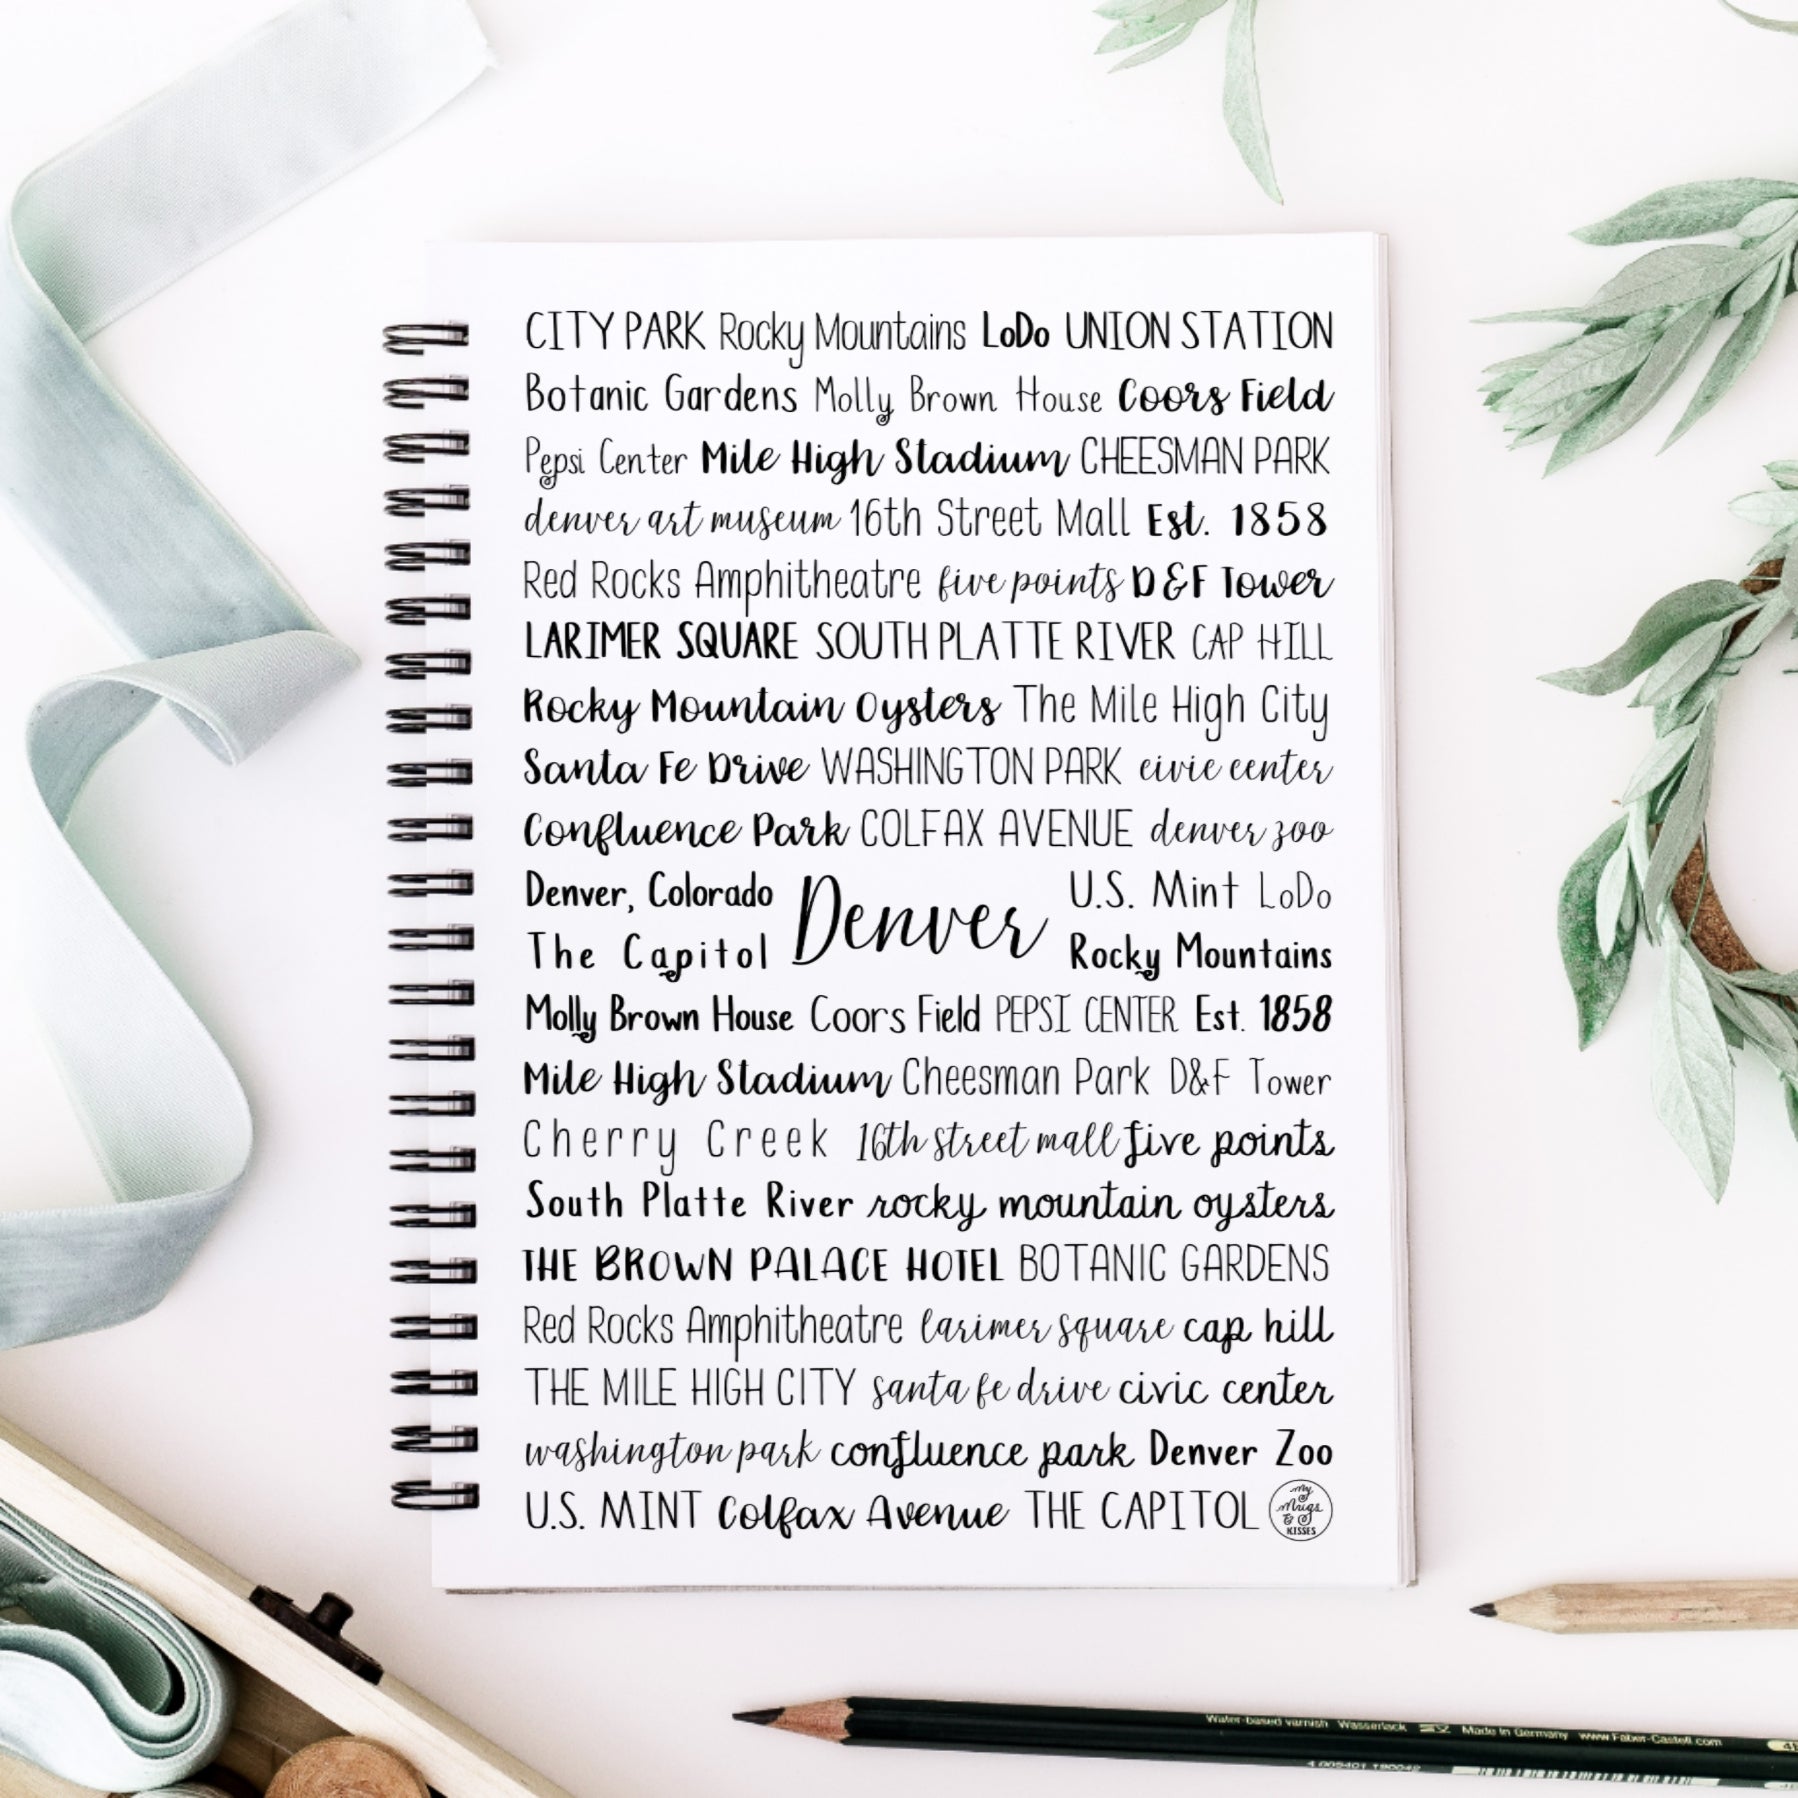 CITY PARK Rocky Mountains LoDo UNION STATION
Botanic Gardens Molly Brown House Coors Field
Pepsi Center Mile High Stadium CHEESMAN PARK
denver art museum 16th Street Mall Est. 1858
Red Rocks Amphitheatre five points D&F Tower
LARIMER SQUARE SOUTH PLATTE RIVER CAP HILL
Rocky Mountain Oysters The Mile High City
Santa Fe Drive WASHINGTON PARK civic center
Confluence Park COLFAX AVENUE denver zoo
Denver, Colorado
The Capitol
Denver
U.S. Mint LoDo
Rocky Mountains
Molly Brown House Coors Field PEPSI CENTER Est. 1858
Mile High Stadium Cheesman Park D&F Tower
Cherry Creek 16th street mall five points
South Platte River rocky mountain oysters
THE BROWN PALACE HOTEL BOTANIC GARDENS
Red Rocks Amphitheatre larimer square cap hill
THE MILE HIGH CITY santa fe drive civic center
washington park confluence park Denver Zoo
U.S. MINT Colfax Avenue THE CAPITOL
my
Mugs
&
KISSES
Water-based varnish Wasserlack Made in Germany www.Faber-Castell.com
4 005401 190042